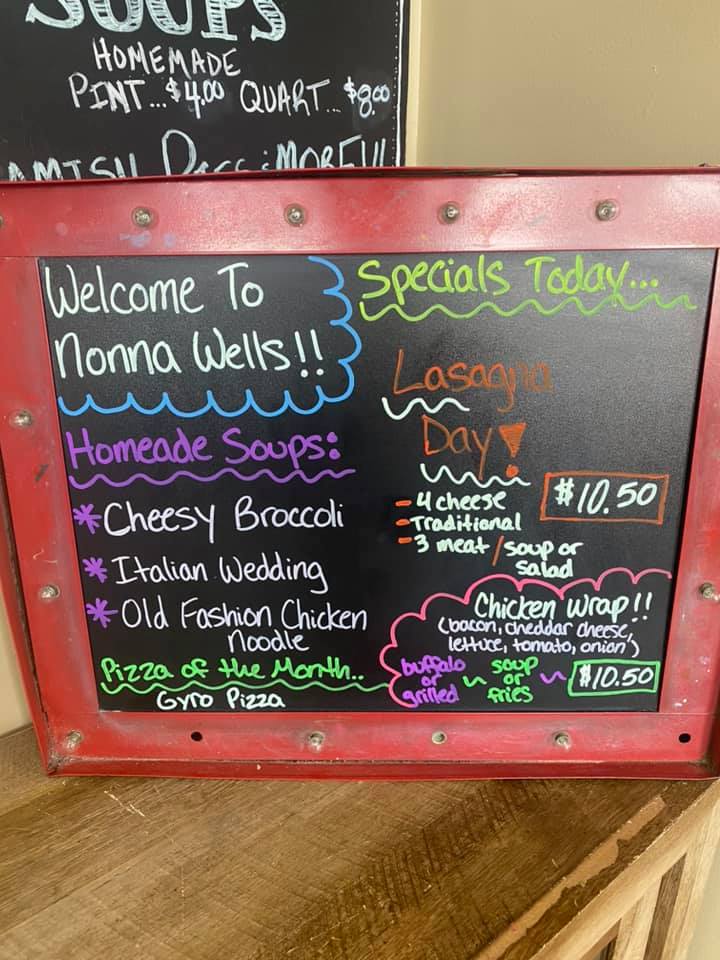 SOUPS
HOMEMADE
PINT...$4.00 QUART...$8.00
AMISH
Welcome To
Nonna Wells!!
Homeade Soups:
* Cheesy Broccoli
* Italian Wedding
* Old Fashion Chicken
Noodle
Pizza of the Month..
Gyro Pizza
Specials Today...
Lasagna
Day!
- 4 cheese
- Traditional
- 3 meat / soup or
salad
$10.50
Chicken Wrap!!
(bacon, cheddar cheese,
lettuce, tomato, onion)
buffalo
or
grilled
~ soup
or
fries ~
$10.50